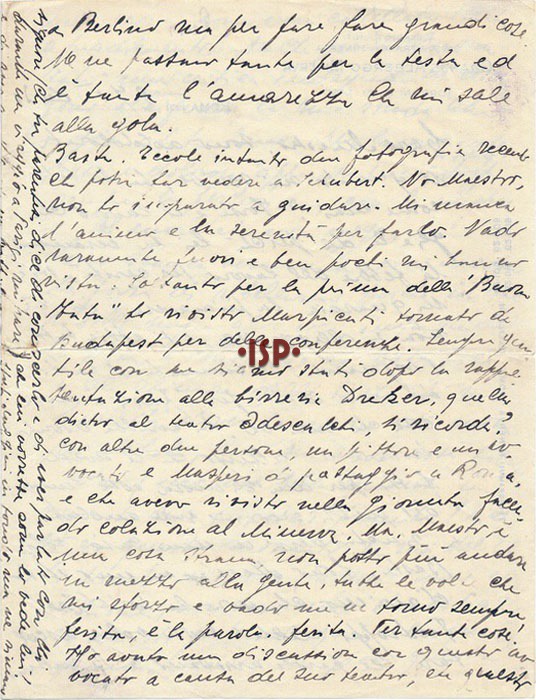 a Berlino ma per fare fare grandi cose.
Me ne passano tante per la testa ed
è tanta l'amarezza che mi sale
alla gola.
Basta. Eccole intanto due fotografie recenti
che potrà far vedere a Schubert. No Maestro,
non ho imparato a guidare. Mi manca
l'animo e la serenità per farlo. Vado
raramente fuori e ben pochi mi hanno
vista. Soltanto per la prima della "Buona
" ho rivisto Marpicati tornato da
Budapest per delle conferenze. Sempre gen
tile con me siamo stati dopo la rappre
sentazione alla birreria Dreher, quella
dietro al teatro Odescalchi, si ricorda?
con altre due persone, un pittore e un av
vocato e Masperi di passaggio a Roma,
e che avevo rivisto nella giornata facen
do colazione al Minerva. Ma, Maestro è
una cosa strana, non posso più andare
in mezzo alla gente, tutte le volte che
mi sforzo e vado me ne torno sempre
ferita, è la parola, ferita. Per tante cose!
Ho avuto una discussione con questo av
vocato a causa del suo teatro, ed questo
•ISP•
signore che fra parentesi dice di conoscerla e di aver parlato con lei
durante un viaggio a Parigi mi pare